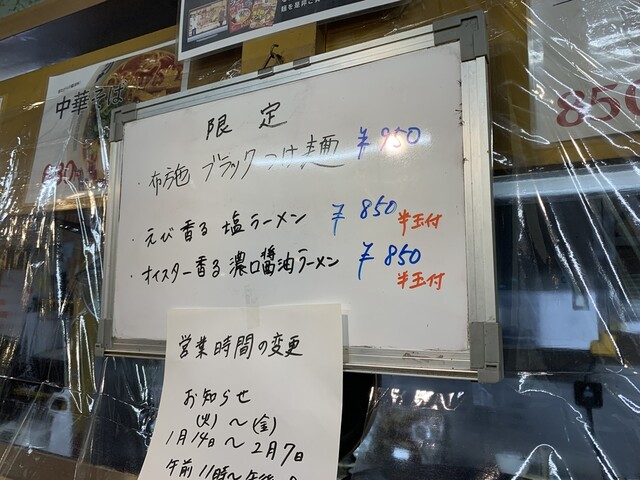 中華そば
850
限定
・布施 ブラックつけ麺 ¥950
・えび香る 塩ラーメン ¥850 半玉付
・オイスター香る 濃口醤油ラーメン ¥850 半玉付
営業時間の変更
お知らせ
(火)〜(金)
1月14日〜2月7日
午前11時〜午後